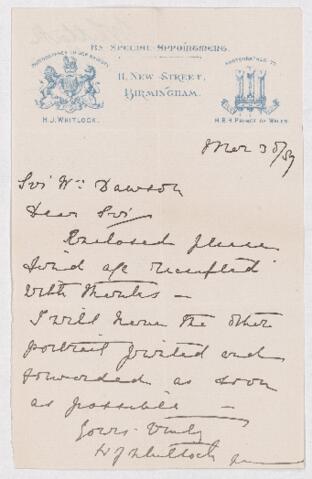 By Special Appointment.
Photographer to Her Majesty
H.J. Whitlock.
11, New Street,
Birmingham.
Photographer to
H.R.H. Prince of Wales
Mar 30/87
Sir Wm Dawson
Dear Sir/
Enclosed please
find a/c receipted
with thanks —
I will have the other
portrait printed and
forwarded as soon
as possible —
Yours truly
H J Whitlock